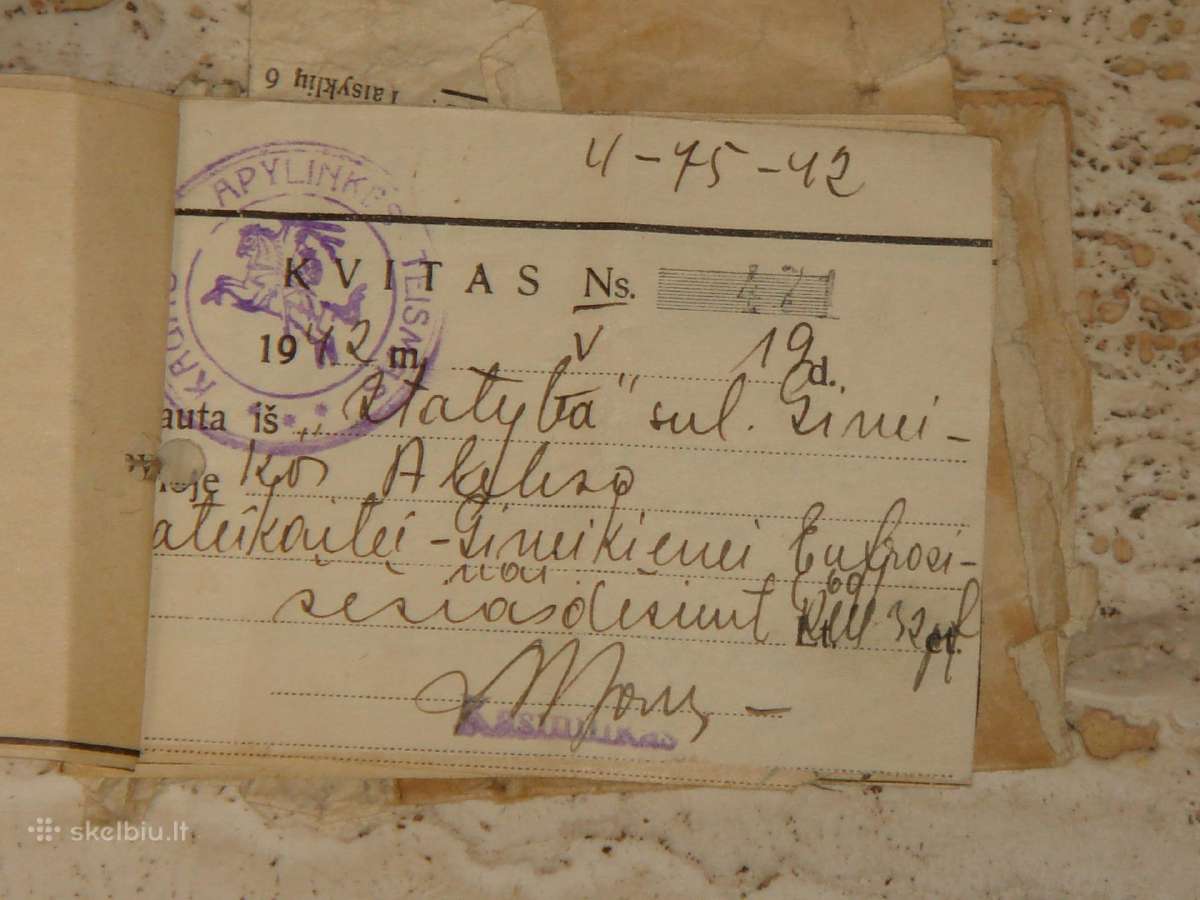 Taisyklių 6
4-75-42
APYLINKĖS TEISMAS
KVITAS Ns. 471
1942 m. V 19 d.,
auta iš „Statyba" sul. Gimei-
kos Alekso
ateikaitei-Gimeikienei Eufrosi-
nai
šešiasdešimt (60) RM 32 pf
Lt. ct.
Kasininkas
skelbiu.lt